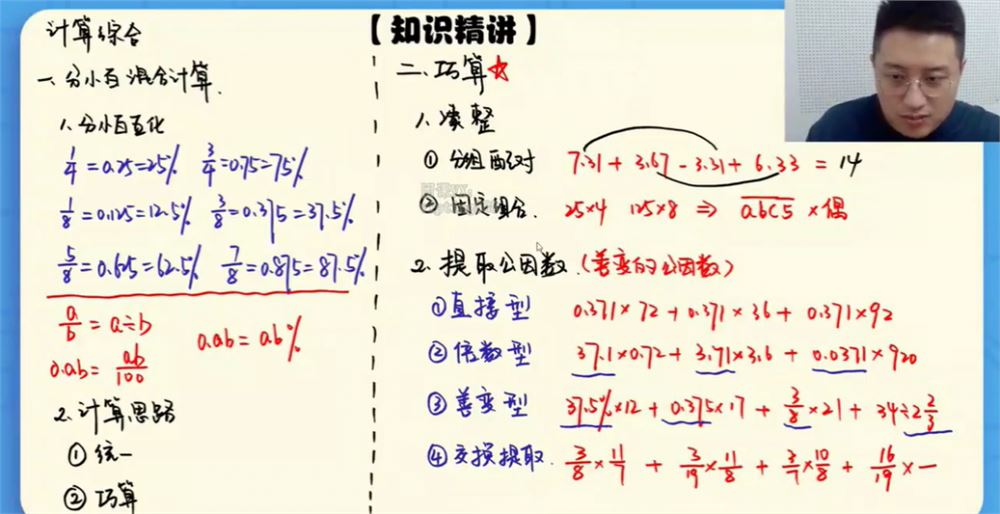 【知识精讲】
计算综合
一、分小百混合计算.
1、分小百互化
1/4 = 0.25 = 25% 3/4 = 0.75 = 75%
1/8 = 0.125 = 12.5% 3/8 = 0.375 = 37.5%
5/8 = 0.625 = 62.5% 7/8 = 0.875 = 87.5%
a/b = a÷b
0.ab = ab% 
0.ab = ab/100
2、计算思路
① 统一
② 巧算
二、巧算☆
1、凑整
① 分组配对 7.31 + 3.67 - 3.31 + 6.33 = 14
② 固定组合. 25×4 125×8 ⇒ abc5 × 偶
2、提取公因数.(善变的公因数)
① 直接型 0.371×72 + 0.371×36 + 0.371×92
② 倍数型 37.1×0.72 + 3.71×3.6 + 0.0371×920
③ 善变型 37.5%×12 + 0.375×17 + 3/8×21 + 34÷2 2/3
④ 交换提取. 3/8×11/7 + 3/19×11/8 + 3/7×10/8 + 16/19×一